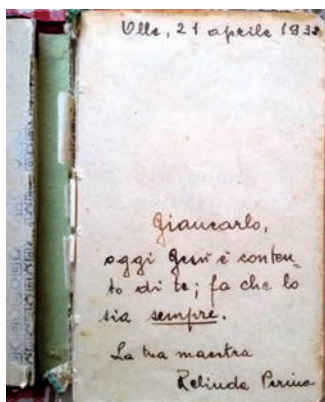 Olle, 21 aprile 1938
Giancarlo,
oggi Gesù è conten-
to di te; fa che lo
sia sempre.
La tua maestra
Relinda Perina